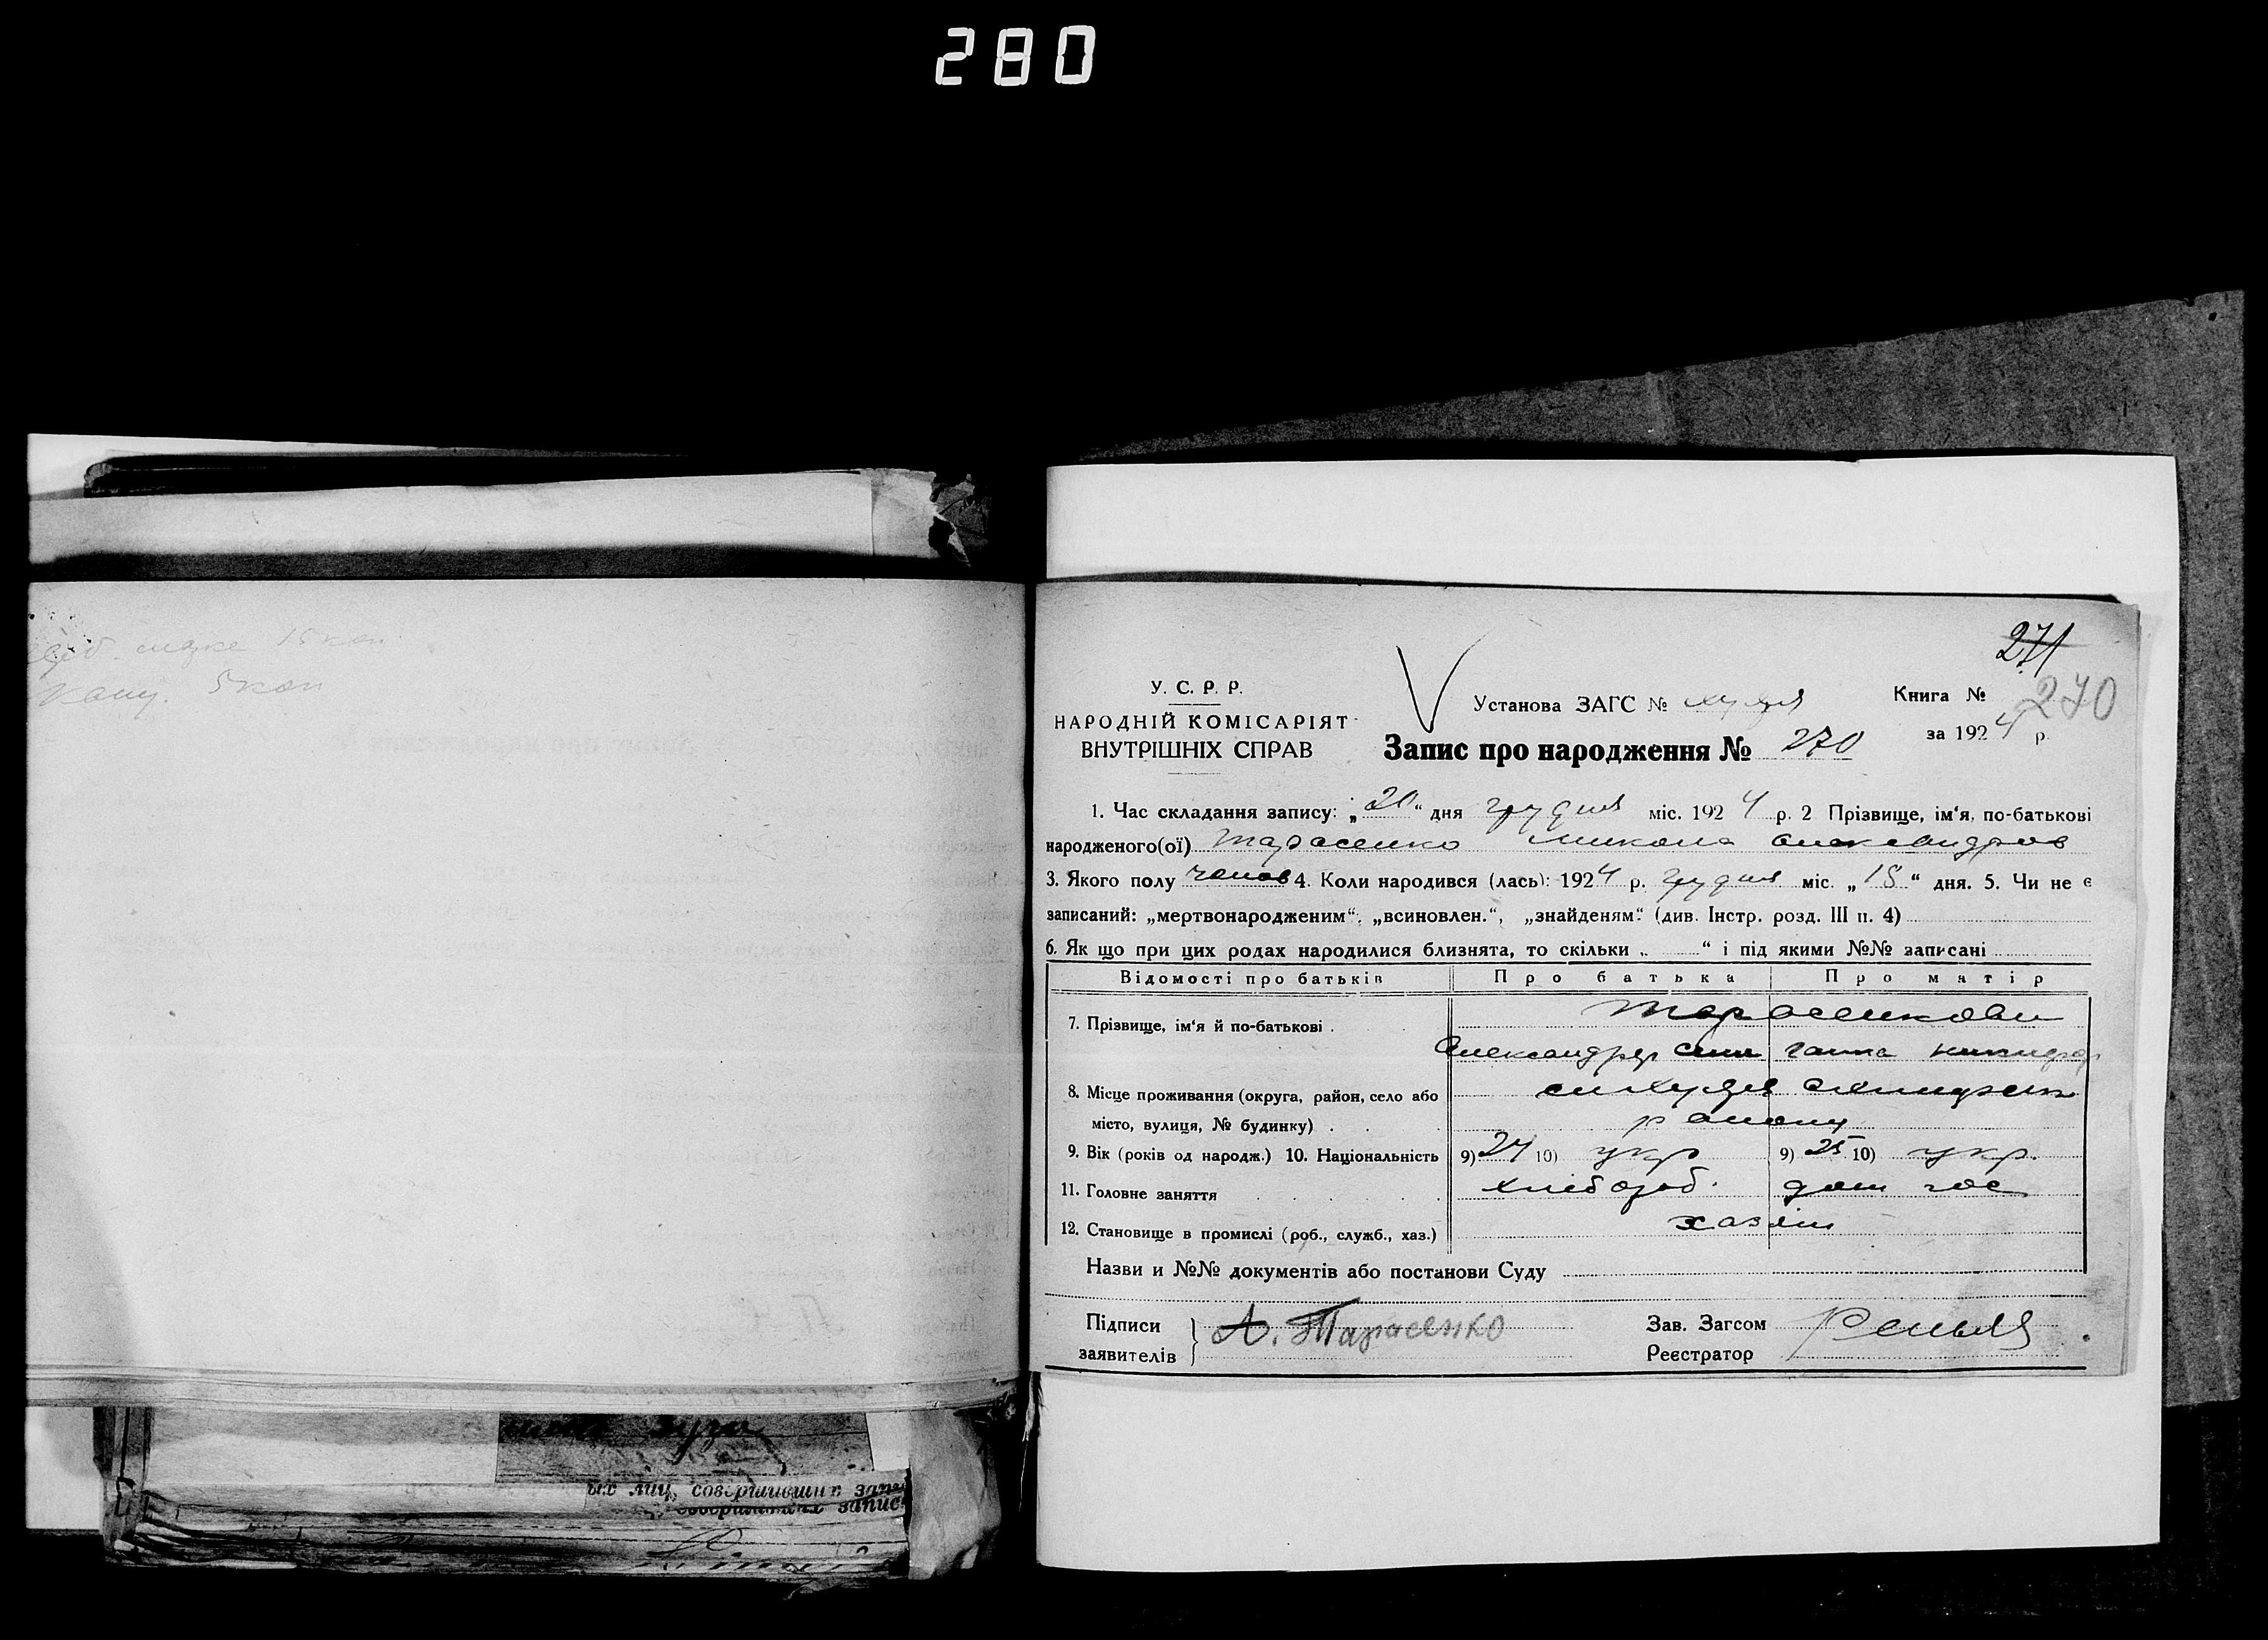 280
271
270
У. С. Р. Р.
НАРОДНІЙ КОМІСАРІЯТ
ВНУТРІШНІХ СПРАВ
Установа ЗАГС №
Книга №
за 1924 р
Запис про народження № 270
1. Час складання запису: „20“ дня грудня міс. 1924 р. 2 Прізвище, ім‘я, по-батькові
народженого(ої) Тарасенко Микола Александров
3. Якого полу чолов 4. Коли народився (лась): 1924 р. грудня міс. „18“ дня. 5. Чи не є
записаний: „мертвонародженим“, „всиновлен.“, „знайденям“ (див. Інстр. розд. III п. 4)
6. Як що при цих родах народилися близнята, то скільки „ “ і під якими №№ записані
Відомості про батьків Про батька Про матір
7. Прізвище, ім‘я й по-батькові . Тарасенкови
Александр Ганна
8. Місце проживання (округа, район, село або
місто, вулиця, № будинку) . району
9. Вік (років од народж.) 10. Національність 9) 24 10) укр 9) 25 10) укр.
11. Головне заняття хлібороб. дом гос
12. Становище в промислі (роб., служб., хаз.) хазяїн
Назви и №№ документів або постанови Суду
Підписи
заявителів
А. Тарасенко
Зав. Загсом
Реєстратор
15 коп
5 коп
их лиц, совершивших запи
совершивших запис